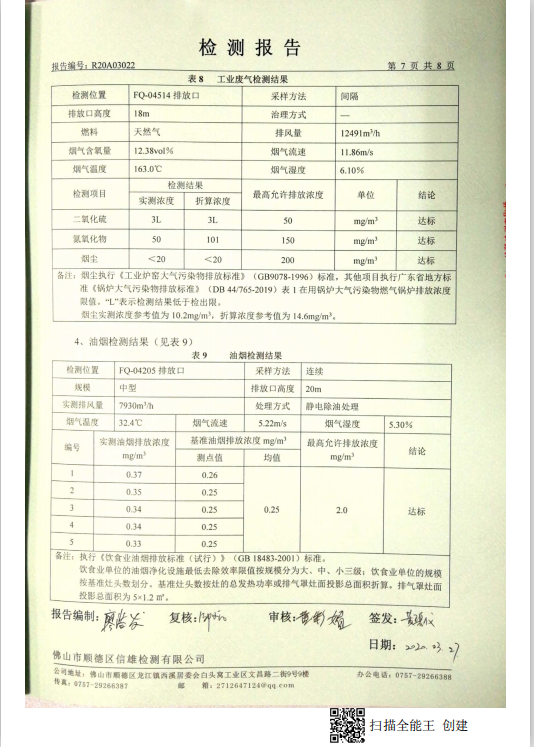 检测报告
报告编号：R20A03022 第 7 页 共 8 页
表 8 工业废气检测结果
检测位置 FQ-04514 排放口 采样方法 间隔
排放口高度 18m 治理方式 —
燃料 天然气 排风量 12491m³/h
烟气含氧量 12.38vol% 烟气流速 11.86m/s
烟气温度 163.0℃ 烟气湿度 6.10%
检测项目 检测结果 最高允许排放浓度 单位 结论
实测浓度 折算浓度
二氧化硫 3L 3L 50 mg/m³ 达标
氮氧化物 50 101 150 mg/m³ 达标
烟尘 <20 <20 200 mg/m³ 达标
备注：烟尘执行《工业炉窑大气污染物排放标准》（GB9078-1996）标准，其他项目执行广东省地方标
准《锅炉大气污染物排放标准》（DB 44/765-2019）表 1 在用锅炉大气污染物燃气锅炉排放浓度
限值。“L”表示检测结果低于检出限。
烟尘实测浓度参考值为 10.2mg/m³，折算浓度参考值为 14.6mg/m³。
4、油烟检测结果（见表 9）
表 9 油烟检测结果
检测位置 FQ-04205 排放口 采样方法 连续
规模 中型 排放口高度 20m
实测排风量 7930m³/h 处理方式 静电除油处理
烟气温度 32.4℃ 烟气流速 5.22m/s 烟气湿度 5.30%
编号 实测油烟排放浓度 mg/m³ 基准油烟排放浓度 mg/m³ 最高允许排放浓度 mg/m³ 结论
测点值 均值
1 0.37 0.26
2 0.35 0.25
3 0.34 0.25 0.25 2.0 达标
4 0.34 0.25
5 0.33 0.25
备注：执行《饮食业油烟排放标准（试行）》（GB 18483-2001）标准。
饮食业单位的油烟净化设施最低去除效率限值按规模分为大、中、小三级；饮食业单位的规模
按基准灶头数划分。基准灶头数按灶的总发热功率或排气罩灶面投影总面积折算。排气罩灶面
投影总面积为 5×1.2 ㎡。
报告编制： 复核： 审核： 签发：
日期：2020.03.27
佛山市顺德区信雄检测有限公司
公司地址：佛山市顺德区龙江镇西溪居委会白头窝工业区文昌路二街9号9楼 办公电话：0757-29266388
传真：0757-29266387 邮 箱：2712647124@qq.com
扫描全能王 创建